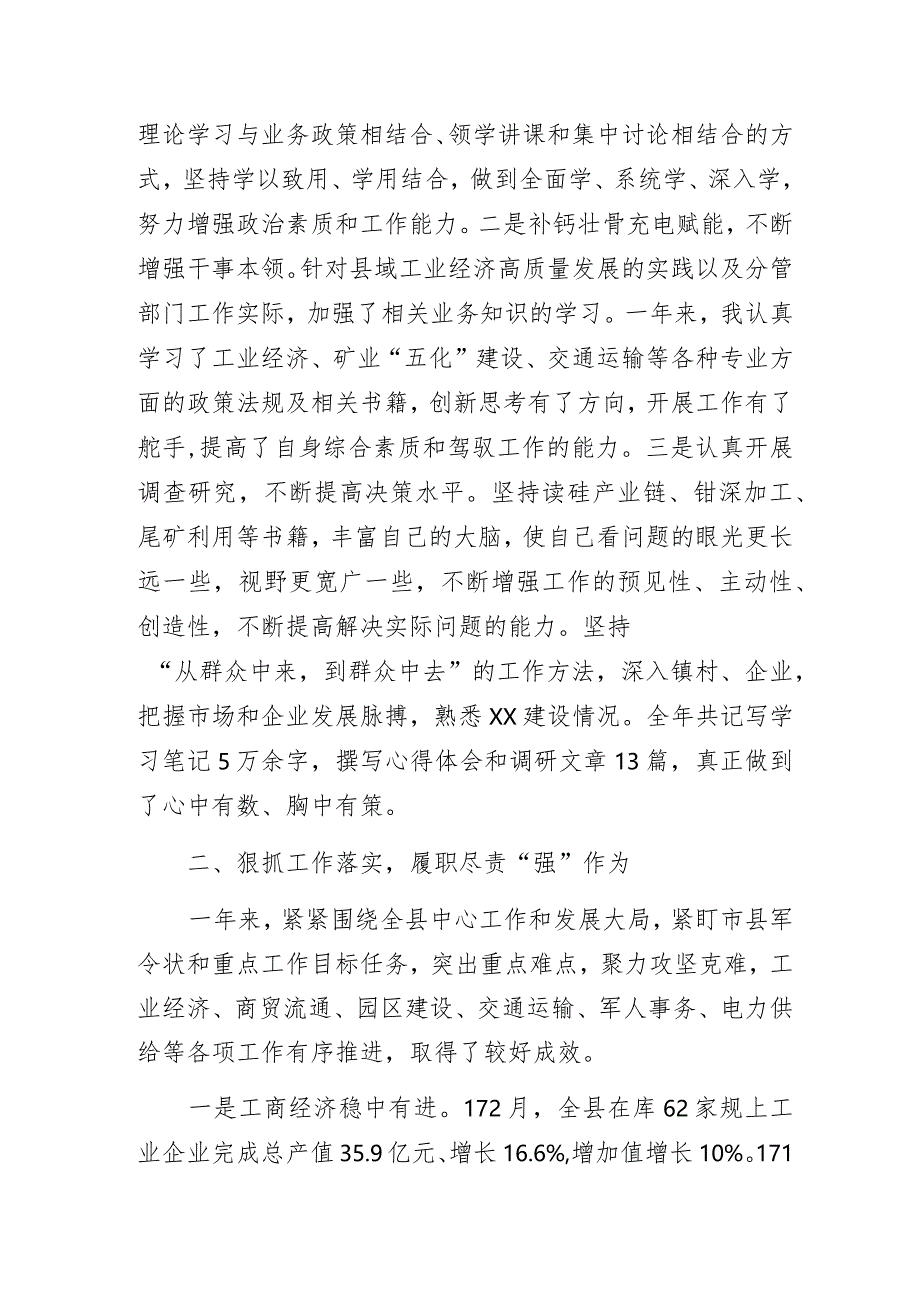 理论学习与业务政策相结合、领学讲课和集中讨论相结合的方
式，坚持学以致用、学用结合，做到全面学、系统学、深入学，
努力增强政治素质和工作能力。二是补钙壮骨充电赋能，不断
增强干事本领。针对县域工业经济高质量发展的实践以及分管
部门工作实际，加强了相关业务知识的学习。一年来，我认真
学习了工业经济、矿业“五化”建设、交通运输等各种专业方
面的政策法规及相关书籍，创新思考有了方向，开展工作有了
舵手,提高了自身综合素质和驾驭工作的能力。三是认真开展
调查研究，不断提高决策水平。坚持读硅产业链、钳深加工、
尾矿利用等书籍，丰富自己的大脑，使自己看问题的眼光更长
远一些，视野更宽广一些，不断增强工作的预见性、主动性、
创造性，不断提高解决实际问题的能力。坚持
“从群众中来，到群众中去”的工作方法，深入镇村、企业，
把握市场和企业发展脉搏，熟悉XX建设情况。全年共记写学
习笔记5万余字，撰写心得体会和调研文章13篇，真正做到
了心中有数、胸中有策。
二、狠抓工作落实，履职尽责“强”作为
一年来，紧紧围绕全县中心工作和发展大局，紧盯市县军
令状和重点工作目标任务，突出重点难点，聚力攻坚克难，工
业经济、商贸流通、园区建设、交通运输、军人事务、电力供
给等各项工作有序推进，取得了较好成效。
一是工商经济稳中有进。172月，全县在库62家规上工
业企业完成总产值35.9亿元、增长16.6%,增加值增长10%。171